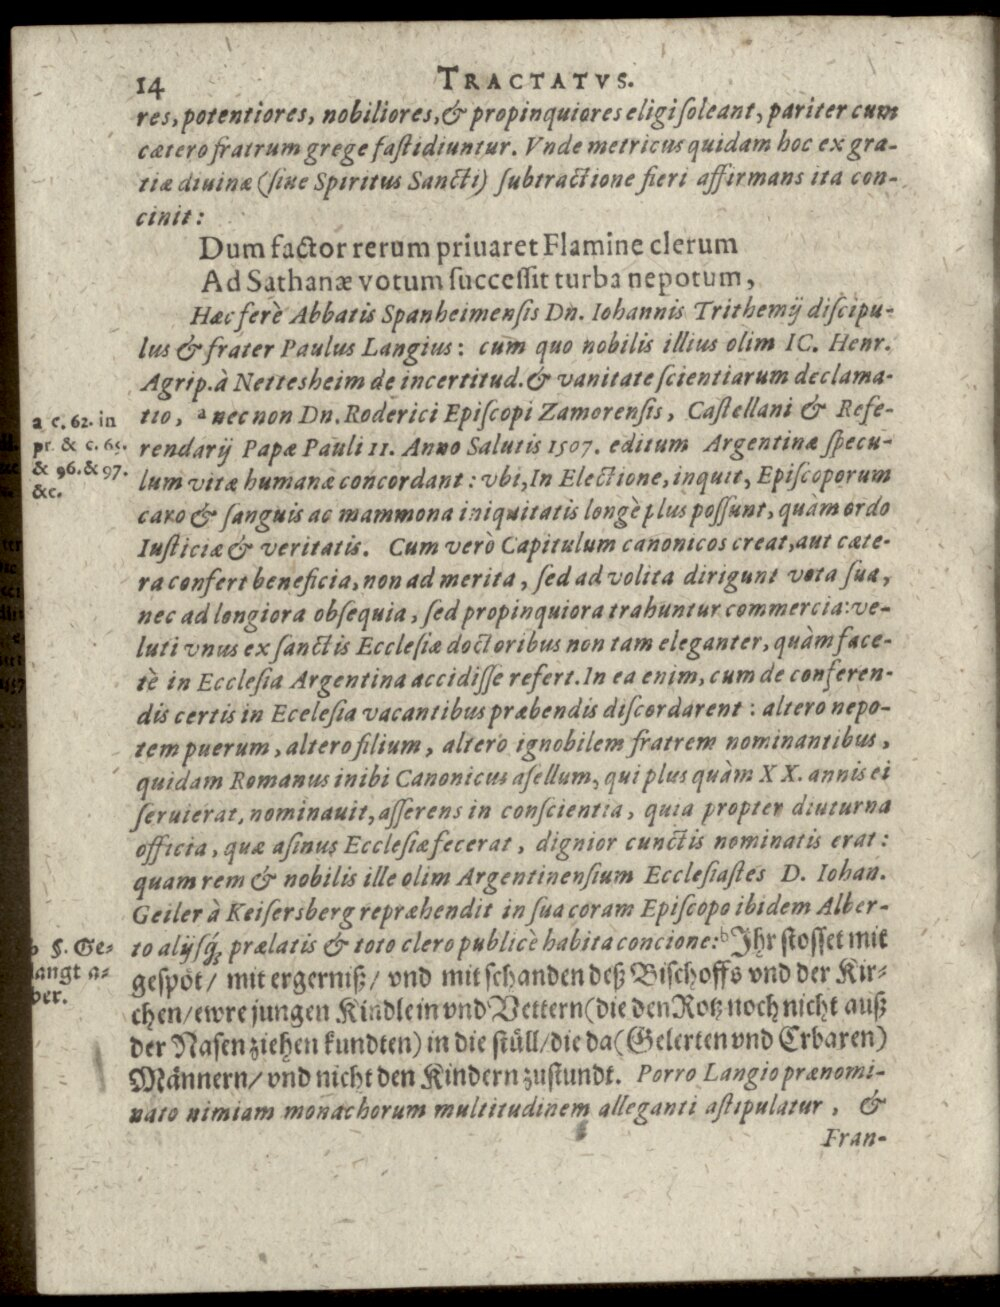 14 TRACTATVS.
res, potentiores, nobiliores, & propinquiores eligi ſoleant, pariter cum
cætero fratrum grege faſtidiuntur. Vnde metricus quidam hoc ex gra-
tiæ diuinæ (ſiue Spiritus Sancti) ſubtractione fieri affirmans ita con-
cinit:
Dum factor rerum priuaret Flamine clerum
Ad Sathanæ votum ſucceſſit turba nepotum,
Hæc ferè Abbatis Spanheimenſis Dn. Iohannis Trithemij diſcipu-
lus & frater Paulus Langius: cum quo nobilis illius olim IC. Henr.
Agrip. à Nettesheim de incertitud. & vanitate ſcientiarum declama-
tio, ᵃ nec non Dn. Roderici Epiſcopi Zamorenſis, Caſtellani & Refe-
a c. 62. in
pr. & c. 65.
& 96. & 97.
&c.
rendarij Papæ Pauli 11. Anno Salutis 1507. editum Argentinæ ſpecu-
lum vitæ humanæ concordant: vbi, In Electione, inquit, Epiſcoporum
caro & ſanguis ac mammona iniquitatis longè plus poſſunt, quam ordo
Iuſticiæ & veritatis. Cum verò Capitulum canonicos creat, aut cæte-
ra confert beneficia, non ad merita, ſed ad volita dirigunt vota ſua,
nec ad longiora obſequia, ſed propinquiora trahuntur commercia: ve-
luti vnus ex ſanctis Eccleſiæ doctoribus non tam eleganter, quàm face-
tè in Eccleſia Argentina accidiſſe refert. In ea enim, cum de conferen-
dis certis in Eceleſia vacantibus præbendis diſcordarent: altero nepo-
tem puerum, altero filium, altero ignobilem fratrem nominantibus,
quidam Romanus inibi Canonicus aſellum, qui plus quàm XX. annis ei
ſeruierat, nominauit, aſſerens in conſcientia, quia propter diuturna
officia, quæ aſinus Eccleſiæ fecerat, dignior cunctis nominatis erat:
quam rem & nobilis ille olim Argentinenſium Eccleſiaſtes D. Iohan.
Geiler à Keiſersberg repræhendit in ſua coram Epiſcopo ibidem Alber-
to alijſq́; prælatis & toto clero publicè habita concione: ᵇ Jhr ſtoſſet mit
b §. Ge-
langt a-
ber.
geſpöt/ mit ergerniß/ vnd mit ſchanden deß Biſchoffs vnd der Kir-
chen/ ewre jungen Kindlein vnd Vettern (die den Rotz noch nicht auß
der Naſen ziehen kundten) in die ſtüll/ die da (Gelerten vnd Erbaren)
Männern/ vnd nicht den Kindern zuſtundt. Porro Langio prænomi-
nato nimiam monachorum multitudinem alleganti aſtipulatur, &
Fran-